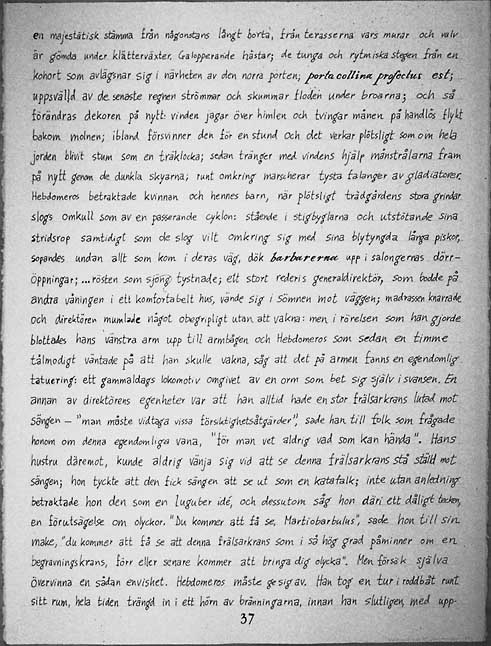 en majestätisk stämma från någonstans långt borta, från terasserna vars murar och valv
är gömda under klätterväxter. Galopperande hästar; de tunga och rytmiska stegen från en
kohort som avlägsnar sig i närheten av den norra porten; porta collina profectus est;
uppsvälld av de senaste regnen strömmar och skummar floden under broarna; och så
förändras dekoren på nytt: vinden jagar över himlen och tvingar månen på handlös flykt
bakom molnen; ibland försvinner den för en stund och det verkar plötsligt som om hela
jorden blivit stum som en träklocka; sedan tränger med vindens hjälp månstrålarna fram
på nytt genom de dunkla skyarna; runt omkring marscherar tysta falanger av gladiatorer.
Hebdomeros betraktade kvinnan och hennes barn, när plötsligt trädgårdens stora grindar
slogs omkull som av en passerande cyklon: stående i stigbyglarna och utstötande sina
stridsrop samtidigt som de slog vilt omkring sig med sina blytyngda långa piskor,
sopandes undan allt som kom i deras väg, dök barbarerna upp i salongernas dörr-
öppningar; ... rösten som sjöng tystnade; ett stort rederis generaldirektör, som bodde på
andra våningen i ett komfortabelt hus, vände sig i sömnen mot väggen; madrassen knarrade
och direktören mumlade något obegripligt utan att vakna: men i rörelsen som han gjorde
blottades hans vänstra arm upp till armbågen och Hebdomeros som sedan en timme
tålmodigt väntade på att han skulle vakna, såg att det på armen fanns en egendomlig
tatuering: ett gammaldags lokomotiv omgivet av en orm som bet sig själv i svansen. En
annan av direktörens egenheter var att han alltid hade en stor frälsarkrans lutad mot
sängen – "man måste vidtaga vissa försiktighetsåtgärder", sade han till folk som frågade
honom om denna egendomliga vana, "för man vet aldrig vad som kan hända". Hans
hustru däremot, kunde aldrig vänja sig vid att se denna frälsarkrans stå ställd mot
sängen; hon tyckte att den fick sängen att se ut som en katafalk; inte utan anledning
betraktade hon den som en luguber idé, och dessutom såg hon däri ett dåligt tecken,
en förutsägelse om olyckor. "Du kommer att få se, Martiobarbulus", sade hon till sin
make, "du kommer att få se att denna frälsarkrans som i så hög grad påminner om en
begravningskrans, förr eller senare kommer att bringa dig olycka". Men försök själva
övervinna en sådan envishet. Hebdomeros måste ge sig av. Han tog en tur i roddbåt runt
sitt rum, hela tiden trängd in i ett hörn av bränningarna, innan han slutligen, med upp-
37